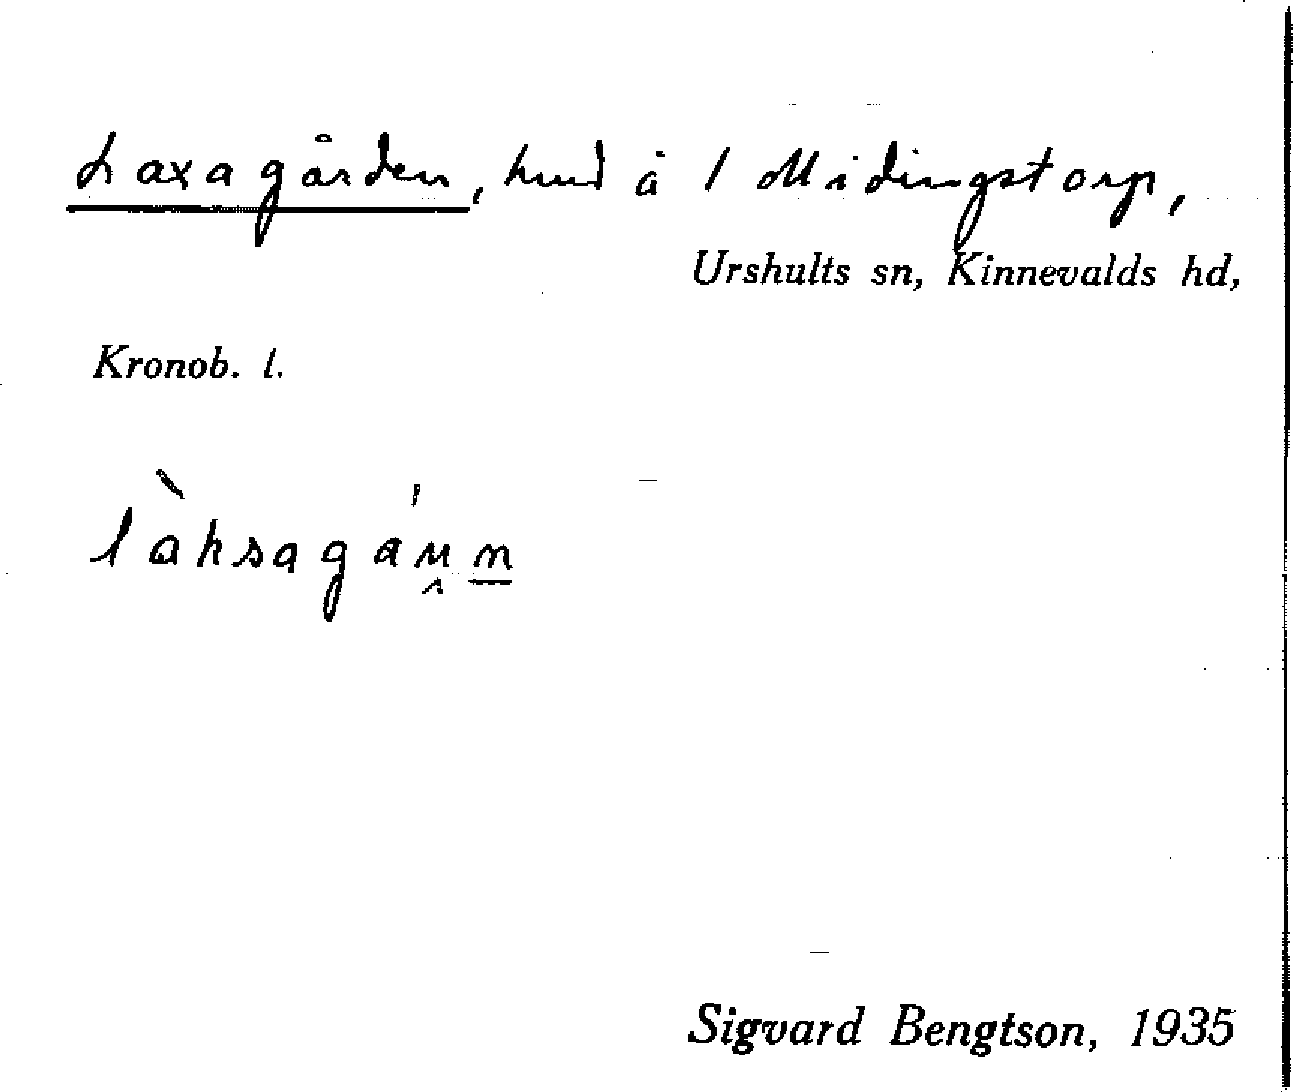 Laxagården, hmd å 1 Midingstorp,
Urshults sn, Kinnevalds hd,
Kronob. l.
Sigvard Bengtson, 1935